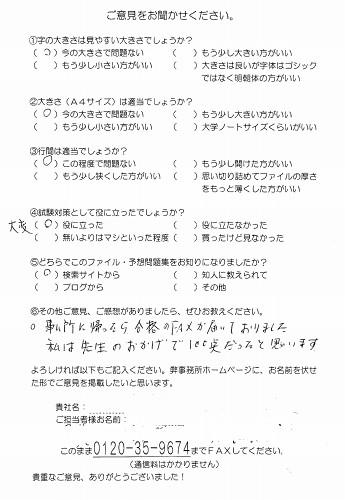 ご意見をお聞かせください。
①字の大きさは見やすい大きさでしょうか?
(○)今の大きさで問題ない ( )もう少し大きい方がいい
( )もう少し小さい方がいい ( )大きさは良いが字体はゴシック
ではなく明朝体の方がいい
②大きさ(A4サイズ)は適当でしょうか?
(○)今の大きさで問題ない ( )もう少し大きい方がいい
( )もう少し小さい方がいい ( )大学ノートサイズくらいがいい
③行間は適当でしょうか?
(○)この程度で問題ない ( )もう少し開けた方がいい
( )もう少し狭くした方がいい ( )思い切り詰めてファイルの厚さ
をもっと薄くした方がいい
④試験対策として役に立ったでしょうか?
大変(○)役に立った ( )役に立たなかった
( )無いよりはマシといった程度 ( )買ったけど見なかった
⑤どちらでこのファイル・予想問題集をお知りになりましたか?
(○)検索サイトから ( )知人に教えられて
( )ブログから ( )その他
⑥その他ご意見、ご感想がありましたら、ぜひお教えください。
○ 事ム所に帰ったら合格のFAXが届いておりました
私は先生のおかげで100点だったと思います
よろしければ以下もご記入ください。弊事務所ホームページに、お名前を伏せ
た形でご意見を掲載したいと思います。
貴社名:
ご担当者様お名前:
このまま0120-35-9674までFAXしてください。
(通信料はかかりません)
貴重なご意見、ありがとうございました!